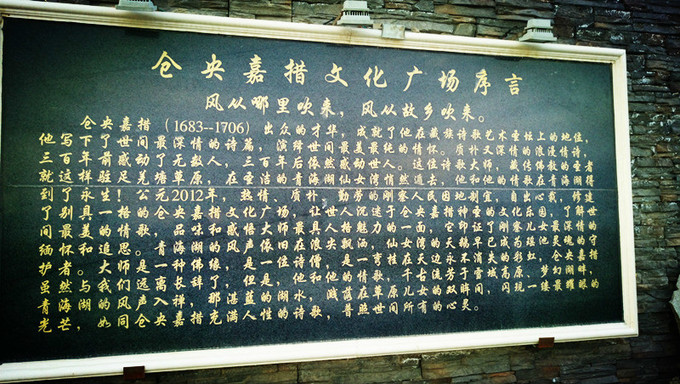 仓央嘉措文化广场序言
风从哪里吹来，风从故乡吹来。
仓央嘉措（1683--1706）出众的才华，成就了他在藏族诗歌艺术圣坛上的地位，
他写下了世间最深情的诗篇，演绎世间最美最纯的情怀。质朴又深情的浪漫情诗，
三百年前感动了无数人，三百年后依然感动世人。这位诗歌大师，藏传佛教的圣者
就这样驻足羌塘草原，在圣洁的青海湖仙女湾悄然遁去，他和他的情歌在青海湖得
到了永生！公元2012年，热情、质朴、勤劳的刚察人民因地制宜，自出心裁，修建
了别具一格的仓央嘉措文化广场，让世人沉迷于仓央嘉措神奇的文化乐园，了解世
间最美的情歌，品味和感悟大师最具魅力的一面，它印证了刚察儿女他最深情的
缅怀和追思。青海湖的风声依旧在浪尖飘洒，仙女湾的天鹅早已成为他灵魂的守
护者。大师是一种佛缘，是一位诗僧，是一弯挂在天边永不消失的彩虹，仓央嘉措
虽然与我们长辞了，但是，他和他的情歌，千古流芳于雪域高原、梦幻湖畔，
青海湖的风声远离入禅，那湛蓝的湖水，溅荡在草原儿女的双眸间，闪现一缕最耀眼的
光芒，如同仓央嘉措那充满人性的诗歌，普照世间所有的心灵。